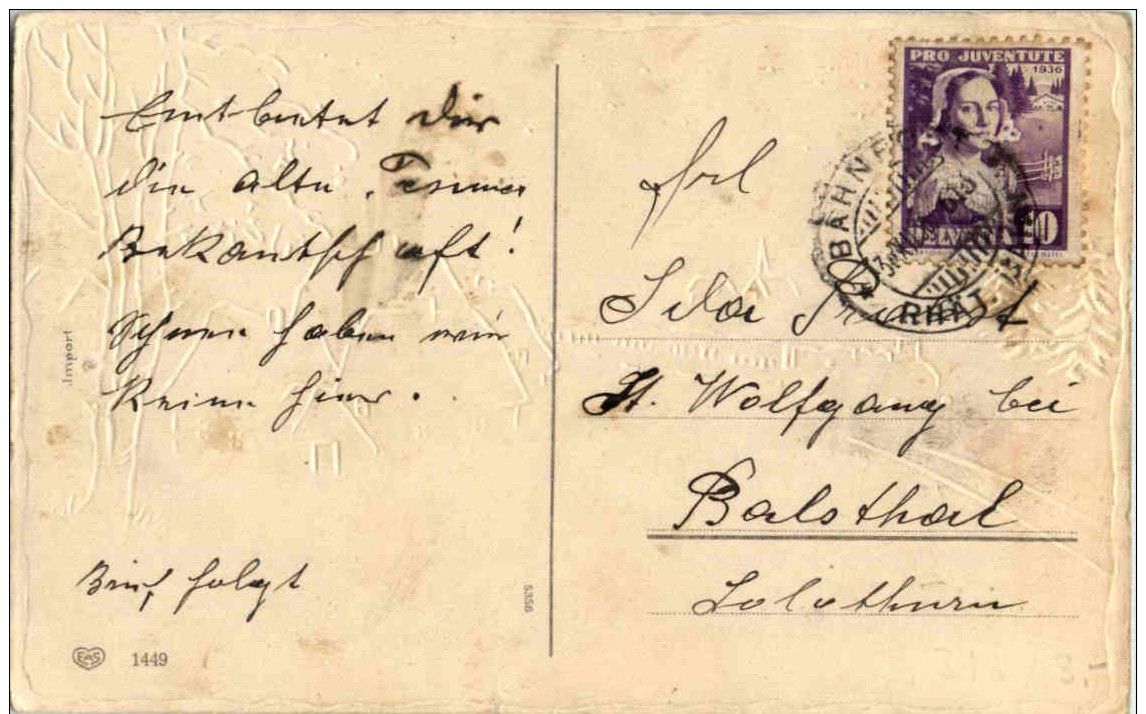 Entbietet dir
die alte Tesiner
Bekantschaft!
Schnee haben wir
keine hier.
Brief folgt
Import
EAS 1449
5356
PRO JUVENTUTE
1936
HELVETIA 20
BAHN
RHÄT.
Frl
Ida
St. Wolfgang bei
Balsthal
Solothurn